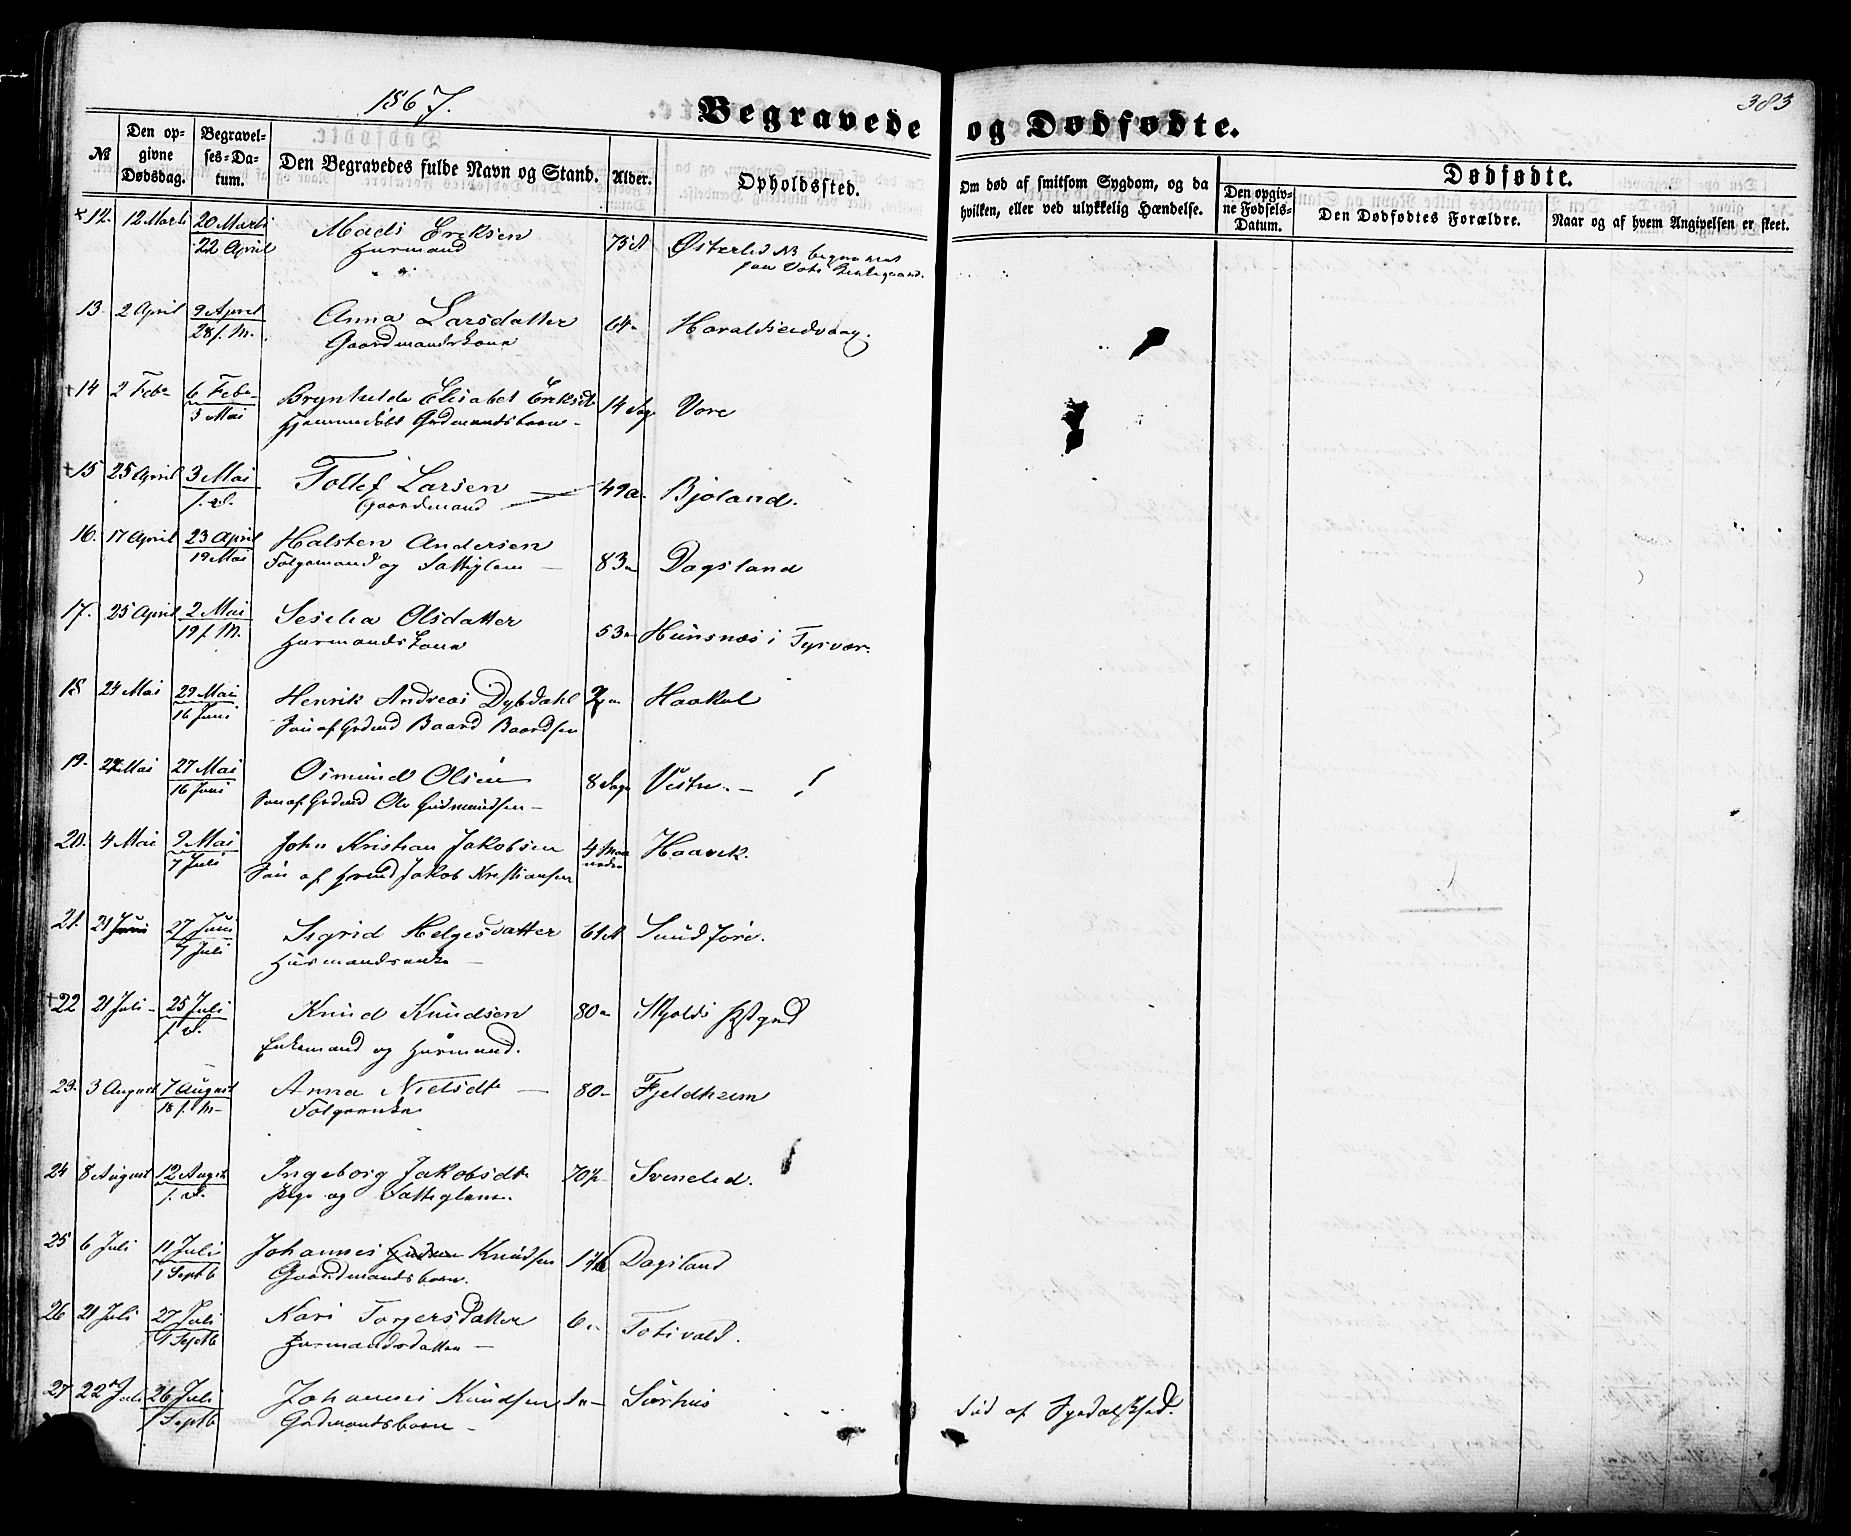 1867.
383
Begravede og Dødfødte.
№
Den opgivne Dødsdag.
Begravelses-Datum.
Den Begravedes fulde Navn og Stand.
Alder.
Opholdssted.
Om død af smitsom Sygdom, og da hvilken, eller ved ulykkelig Hændelse.
Dødfødte.
Den opgivne Fødsels-Datum.
Den Dødfødtes Forældre.
Naar og af hvem Angivelsen er skeet.
12. 12 Marts 20 Marts Mads Eriksen 75 Østerlid NB begravet
22 April Huusmand paa Vats
13. 2 April 9 April Anna Larsdatter 64 Haraldseidvaag.
28 f. M. Gaardmandskone
14 2 Feb 6 Feb Brynhilde Elisabet Eriksdt 14 Dage Vore
3 Mai Hjemmedøbt Grdmandsbarn
15 25 April 3 Mai Tollef Larsen 49 a Bjoland.
f. d. Gaardmand
16. 17 April 23 April Halsten Andersen 83 Dagsland
19 Mai Folgemand og Fattiglem
17. 25 April 2 Mai Seselia Olsdatter 53 Hunsnæs i Tysvær
19 f. M. Huusmandskone
18 24 Mai 29 Mai Henrik Andreas Dybdahl Haakul
16 Juni Søn af Grdmd Baard Baardsen
19. Mai 27 Mai Osmund Olsen 8 Dage Vestre
16 Juni Søn af Grdmd Ole Gudmundsen
20. 4 Mai 9 Mai John Kristian Jakobsen 4 Maaneder Haavik.
7 Juli Søn af Grmd Jakob Kristiansen
21. 21 Juni 27 Juni Sigrid Helgesdatter 61 Sundføre.
7 Juli Huusmandsenke
22 21 Juli 25 Juli Knud Knudsen 80 Skjolds Pstgrd
f. d. Enkemand og Huusmand.
23. 3 August 7 August Anna Nielsdt 80 Fjeldheim
18 f. M. Folgeenke
24 8 August 12 Augst Ingeborg Jakobsdt 70 Svenelid.
f. d. Pige og Fattiglem.
25 6 Juli 11 Juli Johannes Knudsen 1 Dagsland
1 Septb Gaardmandsbarn.
26 21 Juli 27 Juli Kari Torgersdatter 6 Totivald.
1 Septb Huusmandsdatter
27 22 Juli 26 Juli Johannes Knudsen Sørhus
1 Septb Grdmandsbarn